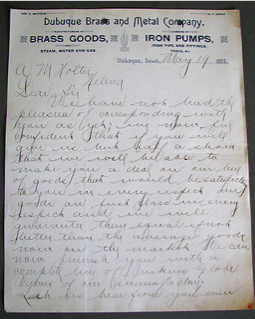 Dubuque Brass and Metal Company,
BRASS GOODS, IRON PUMPS,
STEAM, WATER AND GAS. IRON PIPE AND FITTINGS,
Dubuque, Iowa, May 19
A M Holter
Helena
Dear Sir
We have not had the
pleasure of coresponding with
you as yet,
consider that if you will
give us just half a chance
that we will be able to
make you a deal on our line
of goods that would be satisfactory
to you in every respect our
goods are first class in every
respect and we will
guarantee them equal if not
better than the average goods
now on the market We can
now furnish you with a
complete line of Jenkins globe
Valves of our
us hear from you even